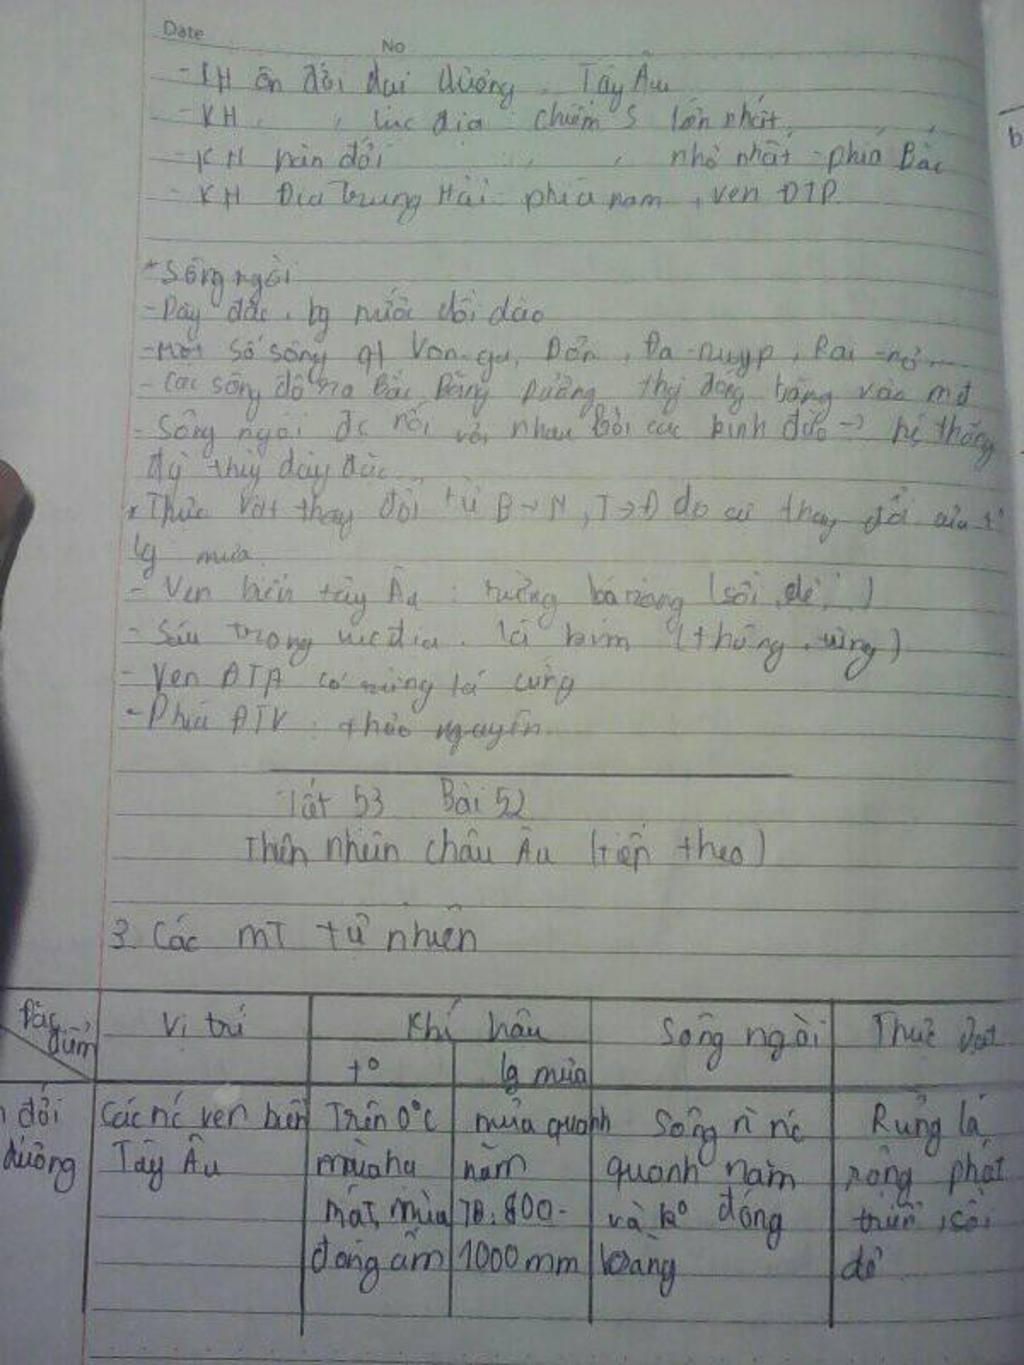 Date
No
- KH ôn đới đại dương : Tây Âu
- KH " " lục địa : chiếm S lớn nhất
- KH hàn đới " " nhỏ nhất - phía Bắc
- KH Địa Trung Hải - phía nam, ven ĐTD
* Sông ngòi
- Dày đặc, lg nước dồi dào
- Một số sông ql Von-ga, Đôn, Đa-nuyp, Rai-nơ...
- Các sông đổ ra Bắc Băng Dương thg đóng băng vào mđ
- Sông ngòi đc nối với nhau bởi các kênh đào → hệ thống
đg thủy dày đặc
* Thực vật thay đổi từ B → N, T → Đ do sự thay đổi của t°
lg mưa
- Ven biển tây Âu : rừng lá rộng (sồi, dẻ, )
- Sâu trong lục địa : lá kim (thông, tùng)
- Ven ĐTH có rừng lá cứng
- Phía ĐTV : thảo nguyên
Tiết 53 Bài 52
Thiên nhiên châu Âu (tiếp theo)
3. Các MT tự nhiên
Đặc điểm
Vị trí
Khí hậu
Sông ngòi
Thực vật
t°
lg mưa
đới
dương
Các nc ven biển
Tây Âu
Trên 0°C
mùa hạ
mát, mùa
đông ấm
mưa quanh
năm
TB: 800-
1000mm
Sông n nc
quanh năm
và k° đóng
băng
Rừng lá
rộng phát
triển, sồi
dẻ